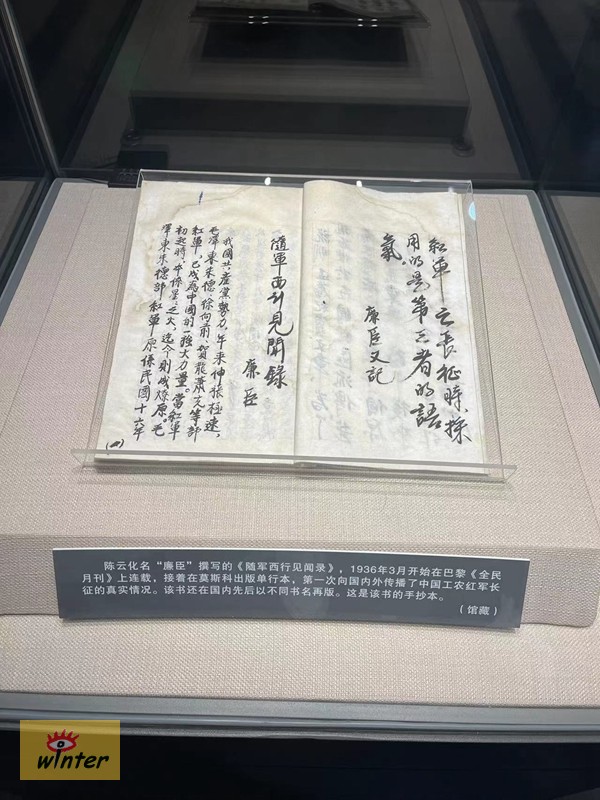 紅軍之長征時，採
用的是第三者的語
氣。
廉臣又記
隨軍西行見聞錄
廉臣
我國共產黨勢力，年來伸張極速，
毛澤東朱德徐向前、賀龍蕭克等部
紅軍，已成為中國的一強大力量。當紅軍
初起時，本係星星之火，迄今則成燎原。毛
澤東朱德部紅軍原係民國十六年
陈云化名“廉臣”撰写的《随军西行见闻录》，1936年3月开始在巴黎《全民
月刊》上连载，接着在莫斯科出版单行本，第一次向国内外传播了中国工农红军长
征的真实情况。该书还在国内先后以不同书名再版。这是该书的手抄本。
（馆藏）
winter